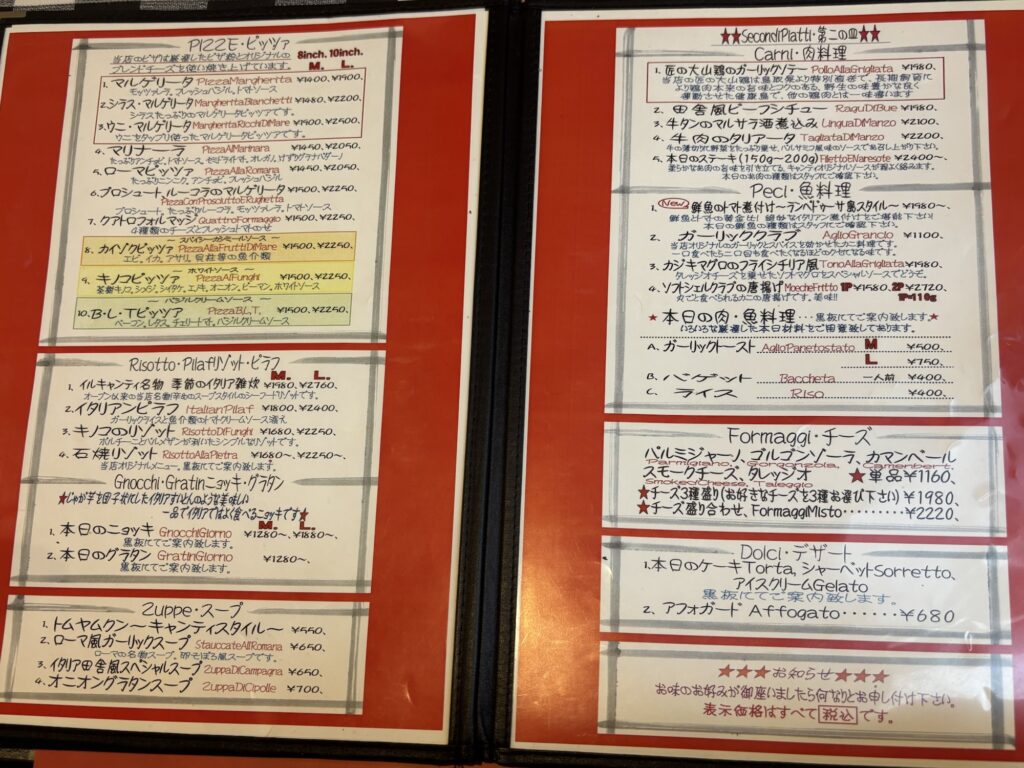 PIZZE・ピッツァ
当店のピザは厳選したピザ粉とオリジナルの
ブレンドチーズを使い焼き上げています。
8inch. 10inch.
M. L.
1. マルゲリータ PizzaMargherita ¥1400、¥1900、
モッツァレラ、フレッシュバジル、トマトソース
2. シラス・マルゲリータ MargheritaBianchetti ¥1480、¥2200、
シラスたっぷりのマルゲリータピッツァです。
3. ウニ・マルゲリータ MargheritaRicchiDiMare ¥1900、¥2500、
ウニをタップリ使ったマルゲリータピッツァです。
4. マリナーラ PizzaAlMarinara ¥1450、¥2050、
たっぷりアンチョビ、トマトソース、セミドライトマト、オレガノ、
5. ローマピッツァ PizzaAllaRomana ¥1450、¥2050、
たっぷりニンニク、アンチョビ、フレッシュバジル
6. プロシュート、ルーコラのマルゲリータ ¥1500、¥2250、
PizzaConProsciuttoERughetta
プロシュート、たっぷりルーコラ、モッツァレーラ、トマトソース
7. クアトロフォルマッジ QuattroFormaggio ¥1500、¥2250、
4種類のチーズとフレッシュトマトのせ
〜 スパイシー・ガンモールソース 〜
8. カイソクピッツァ PizzaAllaFruttiDiMare ¥1500、¥2250、
エビ、イカ、アサリ、貝柱等の魚介類
〜 ホワイトソース 〜
9. キノコピッツァ PizzaAlFunghi ¥1500、¥2250、
茶樹キノコ、シメジ、シイタケ、エノキ、オニオン、ピーマン、ホワイトソース
〜 バジルクリームソース 〜
10. B・L・Tピッツァ PizzaB,L,T. ¥1500、¥2250、
ベーコン、レタス、チェリートマト、バジルクリームソース
Risotto・Pilafリゾット・ピラフ
M. L.
1. イルキャンティ名物 季節のイタリア雑炊 ¥1980、¥2760、
オープン以来の当店名物!辛めのスープスタイルのシーフードリゾットです。
2. イタリアンピラフ ItalianPilaf ¥1800、¥2400、
ガーリックライスと魚介類のトマトクリームソース添え
3. キノコのリゾット RisottoDiFunghi ¥1680、¥2250、
ポルチーニとパルメザンが利いたシンプルなリゾットです。
4. 石焼リゾット RisottoAllaPietra ¥1680〜、¥2250〜、
当店オリジナルメニュー。黒板にてご案内致します。
Gnocchi・Gratinニョッキ・グラタン
★じゃが芋を団子状にしたイタリアすいとんのような美味しい
一品でイタリアではよく食べるニョッキです★
M. L.
1. 本日のニョッキ GnocchiGiorno ¥1280〜、¥1880〜、
黒板にてご案内致します。
2. 本日のグラタン GratinGiorno ¥1280〜、
黒板にてご案内致します。
Zuppe・スープ
1. トムヤムクン〜キャンティスタイル〜 ¥550、
2. ローマ風ガーリックスープ StauccateAllRomana ¥650、
ローマの名物スープ、卵そぼろ風スープです。
3. イタリア田舎風スペシャルスープ ZuppaDiCampagna ¥650、
4. オニオングラタンスープ ZuppaDiCipolle ¥700、
★★SecondiPiatti・第二の皿★★
Carni・肉料理
1. 匠の大山鶏のガーリックソテー PolloAllaGrigliata ¥1980、
当店の匠の大山鶏は鳥取県より特別直送で、長期飼育に
より鶏肉本来の旨味とコクのある、野生の味豊かな良く
運動させた健康鳥で、他の鶏肉とは一味違います
2. 田舎風ビーフシチュー RaguDiBue ¥1980、
3. 牛タンのマルサラ酒煮込み LinguaDiManzo ¥2100、
4. 牛肉のタリアータ TagliataDiManzo ¥2200、
牛の薄切りに野菜をたっぷり乗せ、バルサミコ風味のソースでお召し上がり下さい。
5. 本日のステーキ(150g〜200g) FilettoENaresote ¥2400〜、
柔らかなお肉の旨味を引き立てる、キャンティオリジナルソースが程よく絡みます。
本日のお肉の種類はスタッフにてご確認下さい。
Peci・魚料理
1. New 鮮魚のトマト煮付け〜ランペドゥーサ島スタイル〜 ¥1980〜、
鮮魚とトマトの黄金比!細やかなイタリアン煮付けをご堪能下さい!
本日の鮮魚の種類はスタッフにてご確認下さい。
2. ガーリッククラブ AglioGrancio ¥1100、
当店オリジナルのガーリックとスパイスを効かせたカニ料理です。
一口食べたら二口目も食べたくなるほどのクセになる味です。
3. カジキマグロのフライシチリア風 TonoAllaGrigliata ¥1980、
タレッジオチーズを乗せたソフトマグロをスペシャルソースでどうぞ。
4. ソフトシェルクラブの唐揚げ MoecheFritto 1P¥1580、2P¥2720、
丸ごと食べられるカニの唐揚げです。美味!! 1P=110g
★本日の肉・魚料理・・・黒板にてご案内致します★
いろいろな厳選した本日材料をご用意致しております。
A. ガーリックトースト AglioPanetostato M ¥500、
L ¥750、
B. バゲット Baccheta 一人前 ¥400、
C. ライス Riso ¥400、
Formaggi・チーズ
パルミジャーノ、ゴルゴンゾーラ、カマンベール
Parmigiano, Gorgonzola, Camenbert,
スモークチーズ、タレッジオ ★単品¥1160、
SmokedCheese, Taleggio
★チーズ3種盛り(お好きなチーズを3種お選び下さい)¥1980、
★チーズ盛り合わせ、FormaggiMisto・・・・・・・・・¥2220、
Dolci・デザート
1. 本日のケーキTorta、シャーベットSorretto、
アイスクリームGelato
黒板にてご案内致します。
2. アフォガード Affogato・・・・・・¥680
★★★お知らせ★★★
お味のお好みが御座いましたら何なりとお申し付け下さい。
表示価格はすべて税込です。